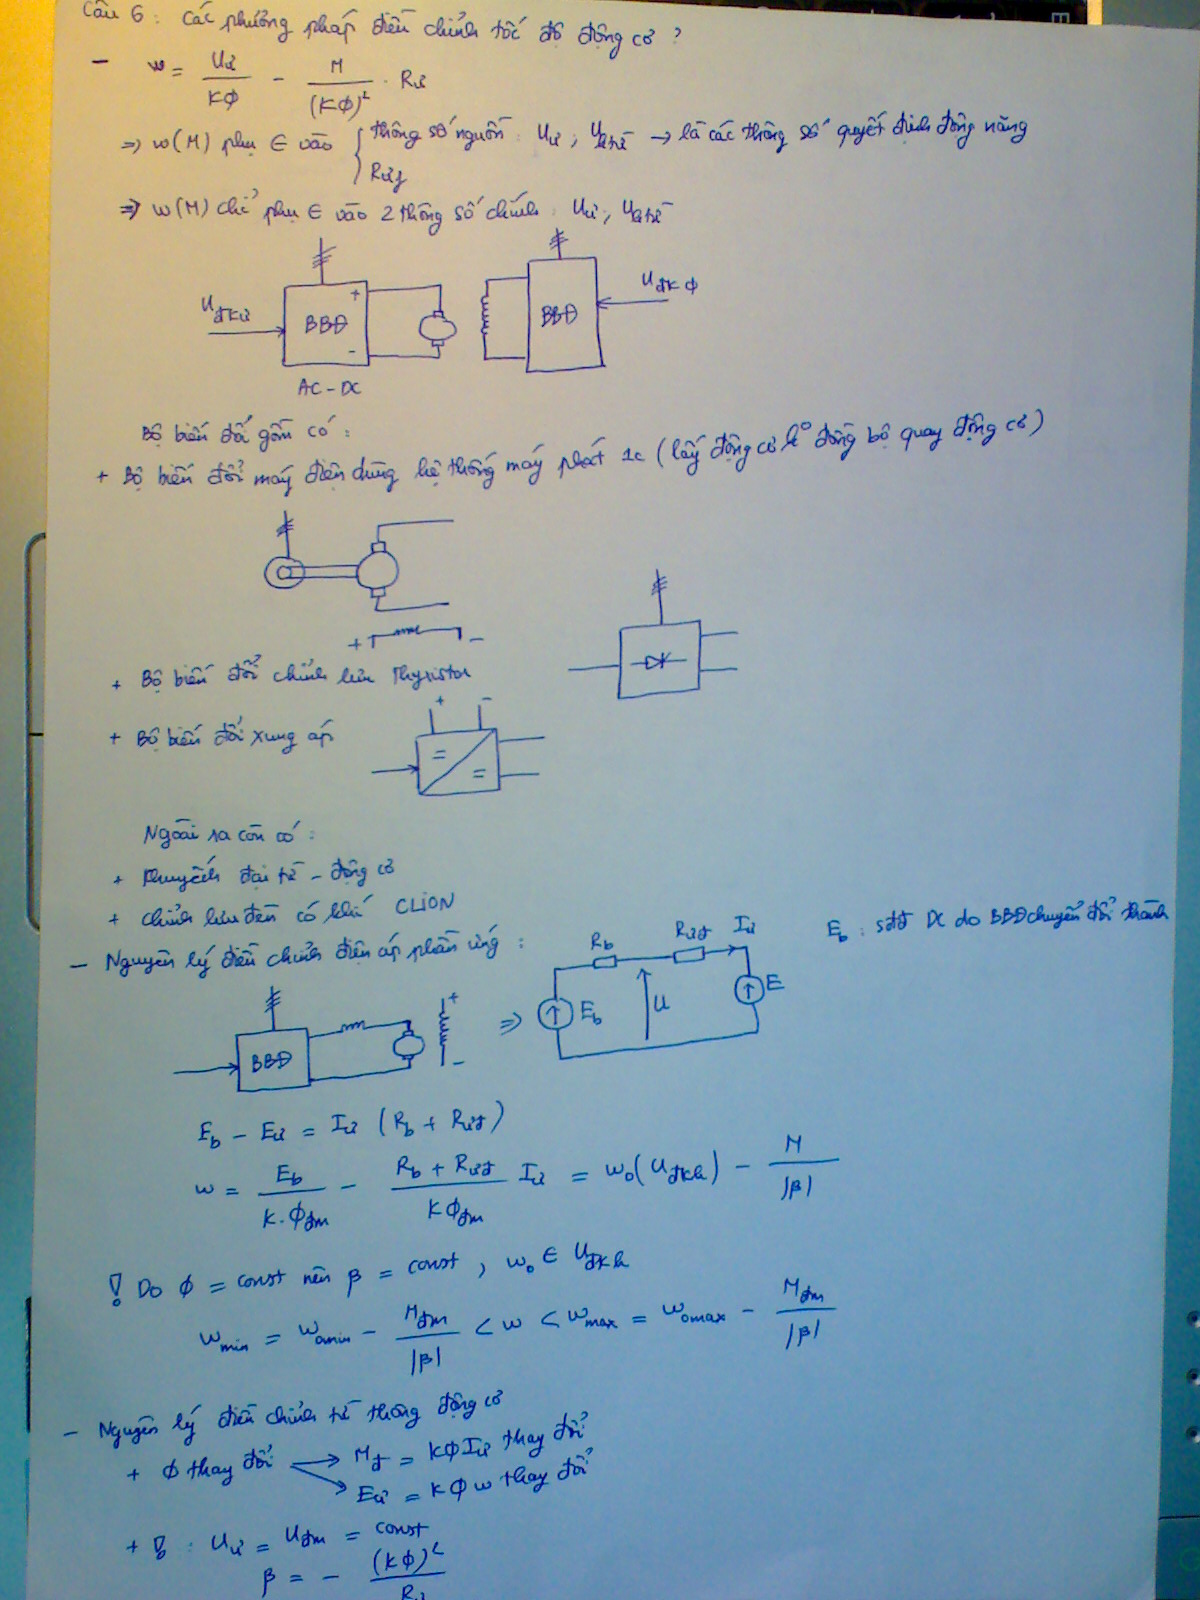 Câu 6 : Các phương pháp điều chỉnh tốc độ động cơ ?
- w = Uư / KΦ - M / (KΦ)² . Rư
=> w(M) phụ ∈ vào { thông số nguồn : Uư ; Uktừ → là các thông số quyết định động năng
Rưf
=> w(M) chỉ phụ ∈ vào 2 thông số chính : Uư ; Uktừ
Uđkư
BBĐ
+
-
AC - DC
BBĐ
UđkΦ
Bộ biến đổi gồm có :
+ Bộ biến đổi máy điện dùng hệ thống máy phát 1c (lấy động cơ k° đồng bộ quay động cơ)
+ -
+ Bộ biến đổi chỉnh lưu Thyristor
+ Bộ biến đổi xung áp
+ -
=
=
Ngoài ra còn có :
+ Khuyếch đại từ - động cơ
+ chỉnh lưu đèn có khí CLION
- Nguyên lý điều chỉnh điện áp phần ứng :
Eb : sđđ DC do BBĐ chuyển đổi thành
BBĐ
+
-
=>
Rb Rưđ Iư
Eb U E
Eb - Eư = Iư (Rb + Rưđ)
w = Eb / K.Φđm - Rb + Rưđ / KΦđm Iư = w0(Uđkh) - M / |β|
! Do Φ = const nên β = const , w0 ∈ Uđkh
wmin = w0min - Mđm / |β| < w < wmax = w0max - Mđm / |β|
- Nguyên lý điều chỉnh từ thông động cơ
+ Φ thay đổi → Mđ = KΦIư thay đổi
Eư = KΦw thay đổi
+ Uư = Uđm = const
β = - (KΦ)² / Rư